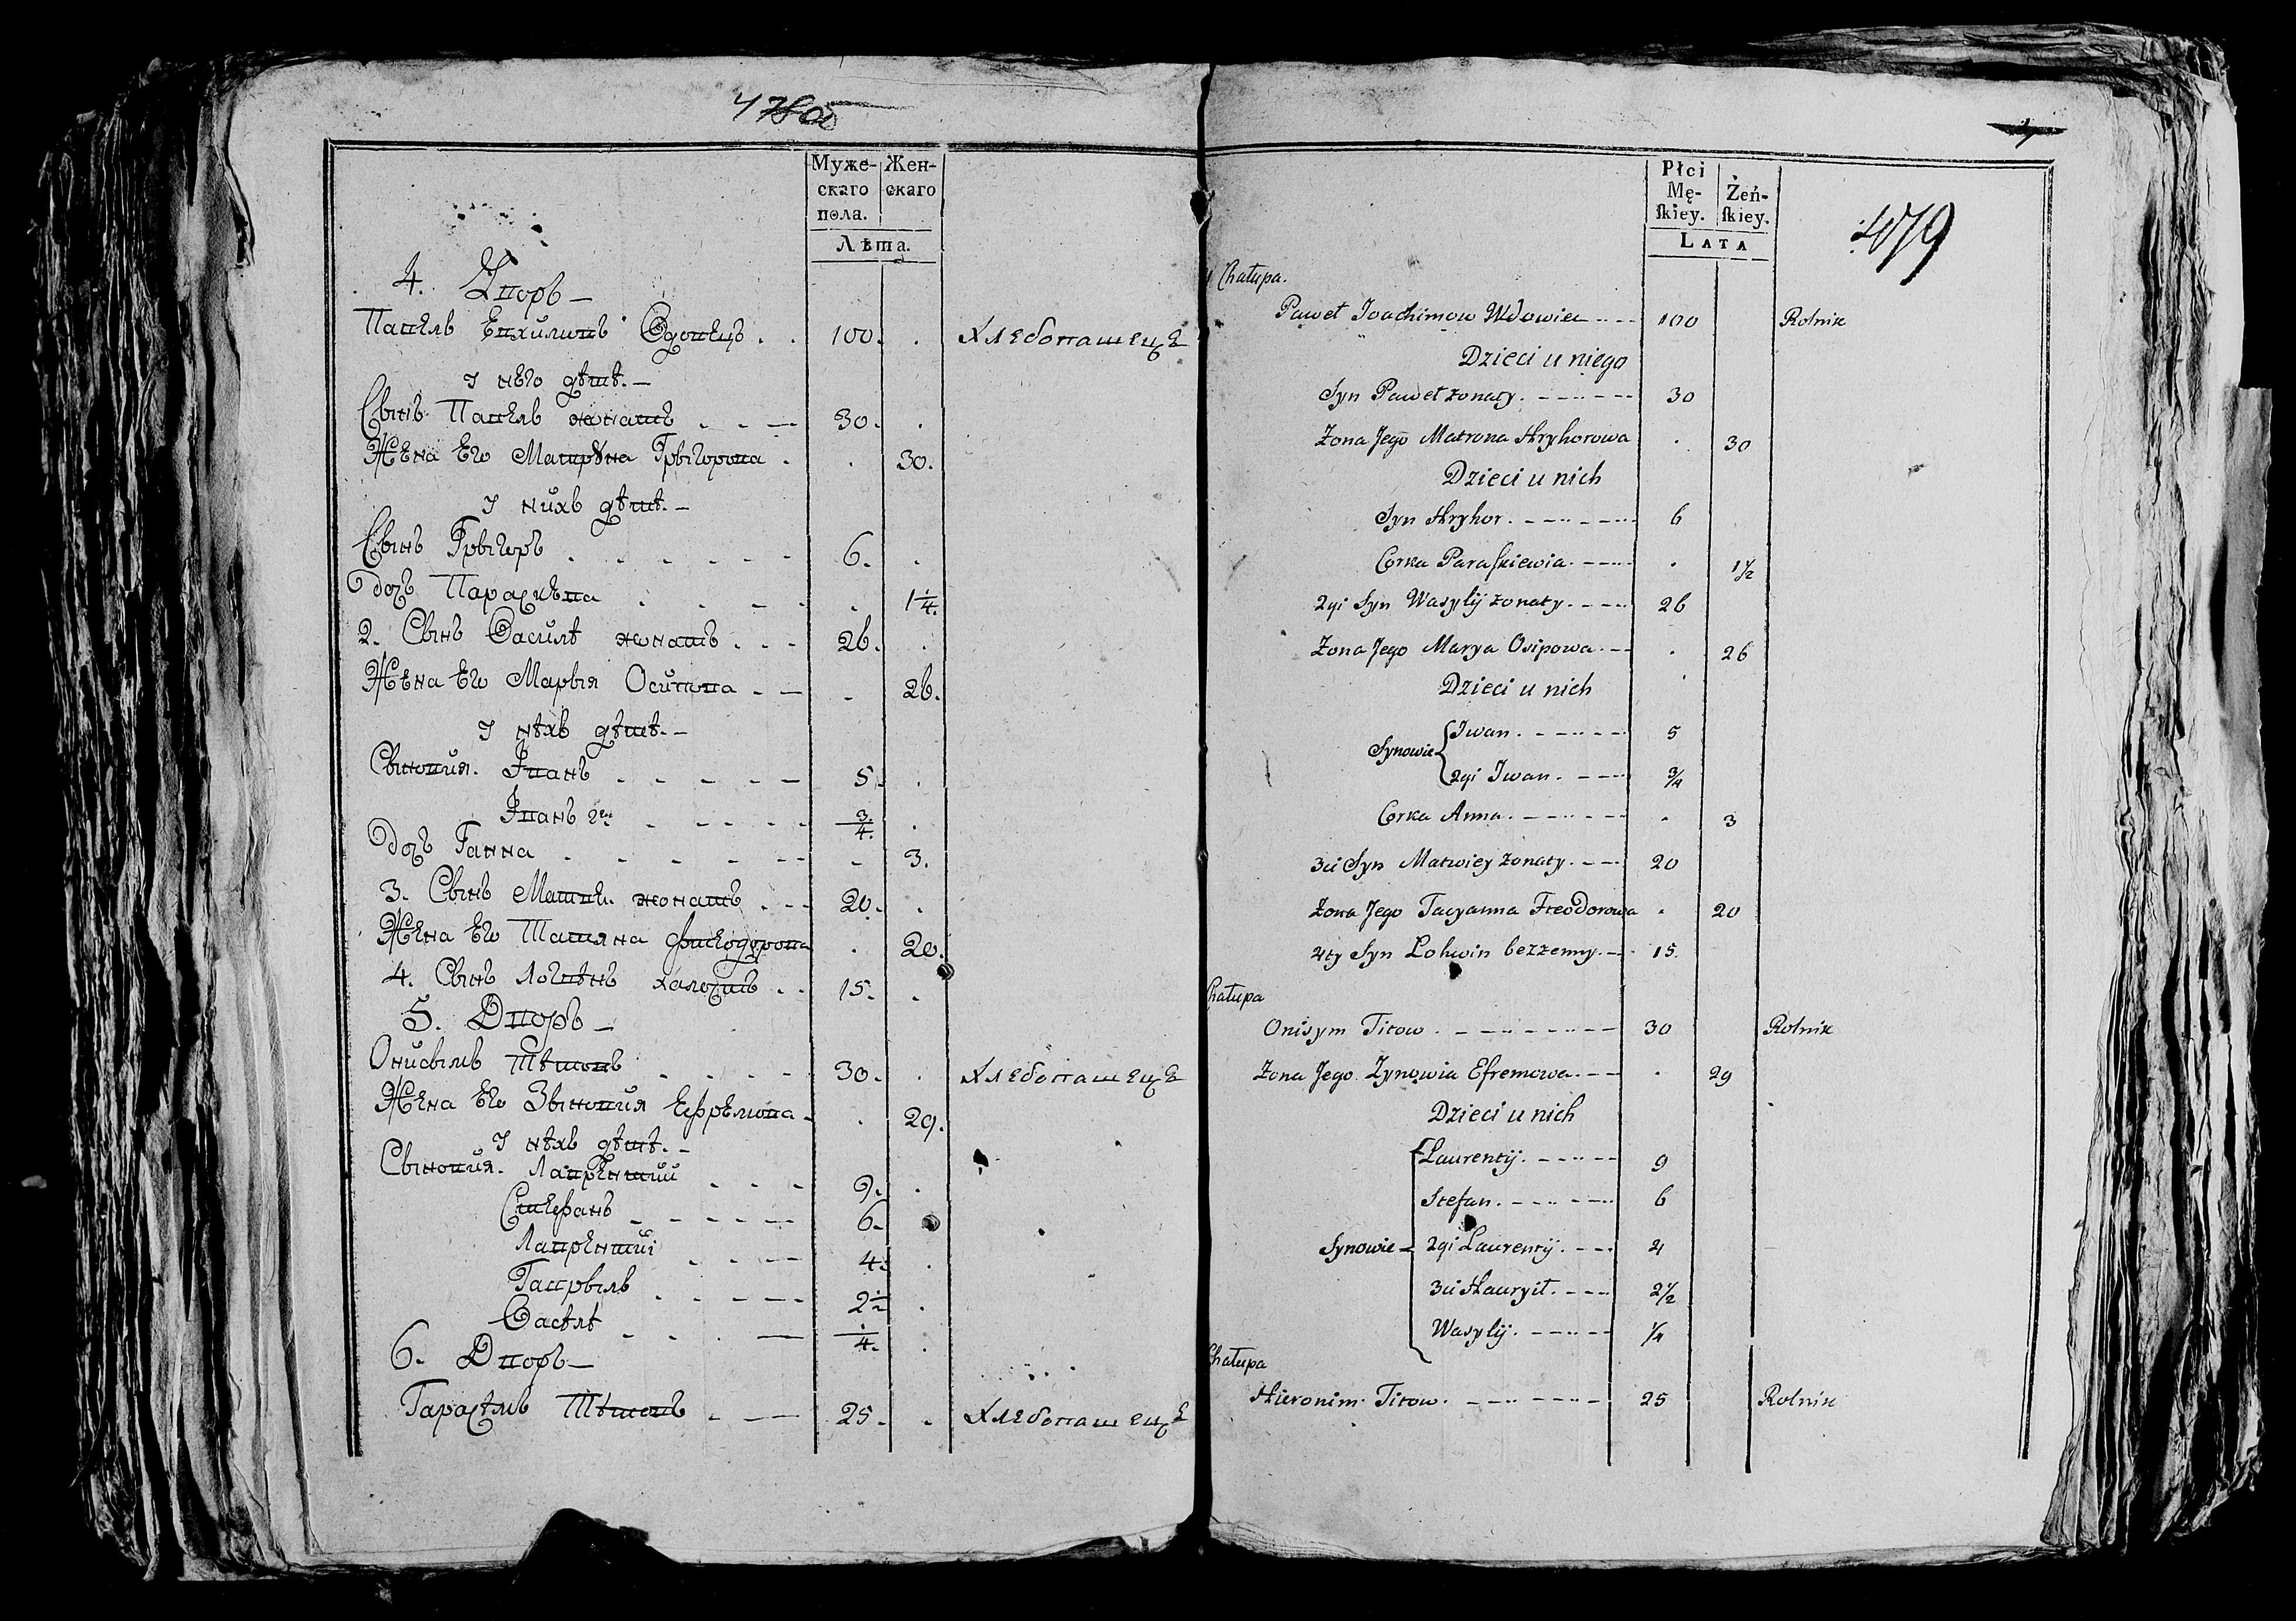 478об
Муже-
скаго
пола.
Жен-
скаго
Лѣта.
4. Дворъ —
Павелъ Евхимовъ Вдовецъ . . 100. . хлебопашецъ
У него дѣти. —
Сынъ Павелъ жонатъ . . — 30. .
Жена Его Матрѹна Грыгорова . . 30.
У нихъ дѣти. —
Сынъ Грыгоръ . . . . - - 6. .
Дочь Параскева . . . . . 1¼.
2. Сынъ Василѣ жонатъ . . - 26. .
Жена Его Марыя Осипова - — - 26.
У нѣхъ дѣти. —
Сыновия. Іванъ . - - - — 5. .
Іванъ 2й - - - - - ¾. .
Дочь Ганна . - - - - - - 3.
3. Сынъ Матвѣ. жонатъ . - - 20. .
Жена Его Татяна Фтеодорова . 20.
4. Сынъ Логвѣнъ халостъ . . 15. .
5. Дворъ —
Онисымъ Тѣтовъ . . . - 30. . хлебопашецъ
Жена Его Зыновия Ефремова - . 29.
У нѣхъ дѣти. -
Сыновия. Лаврентий . . - 9. .
Стефанъ - - - - — 6.
Лаврентиі . - - — 4. .
Гаврылъ . - - - — 2½ .
Васѣлѣ - . . — ¼. .
6. Дворъ —
Гарасѣмъ Тѣтовъ - — 25. . хлебопашецъ
479
Płci
Mę-
ſkiey.
Żeń-
ſkiey.
LATA
Chałupa.
Paweł Joachimow Wdowiec - - - 100 Rolnik
Dzieci u niego
Syn Paweł żonaty. - - - - - - 30
Żona Jego Matrona Hryhorowa . 30
Dzieci u nich
Syn Hryhor. - - - - - - - 6
Corka Paraſkiewia. - - - - . 1½
2gi Syn Wasylij żonaty. - - - - 26
Żona Jego Marya Osipowa. - - . 26
Dzieci u nich
Synowie
Iwan. - - - - - - 5
2gi Iwan. - - - - ¾
Corka Anna. - - - - - - . 3
3ci Syn Matwiey żonaty. - - - 20
Żona Jego Tacyanna Fteodorowa . 20
4ty Syn Lohwin bezżenny. - - 15.
Chałupa
Onisym Titow. - - - - - - - - 30 Rolnik
Żona Jego Zynowia Efremowa. - - - . 29
Dzieci u nich
Synowie
Laurentij. - - - - - 9
Stefan. - - - - - - 6
2gi Laurentij. - - - 4
3ci Hauryił. - - - - 2½
Wasylij. - - - - - ¼
Chałupa
Hieronim Titow. - - - - - - - 25 Rolnik